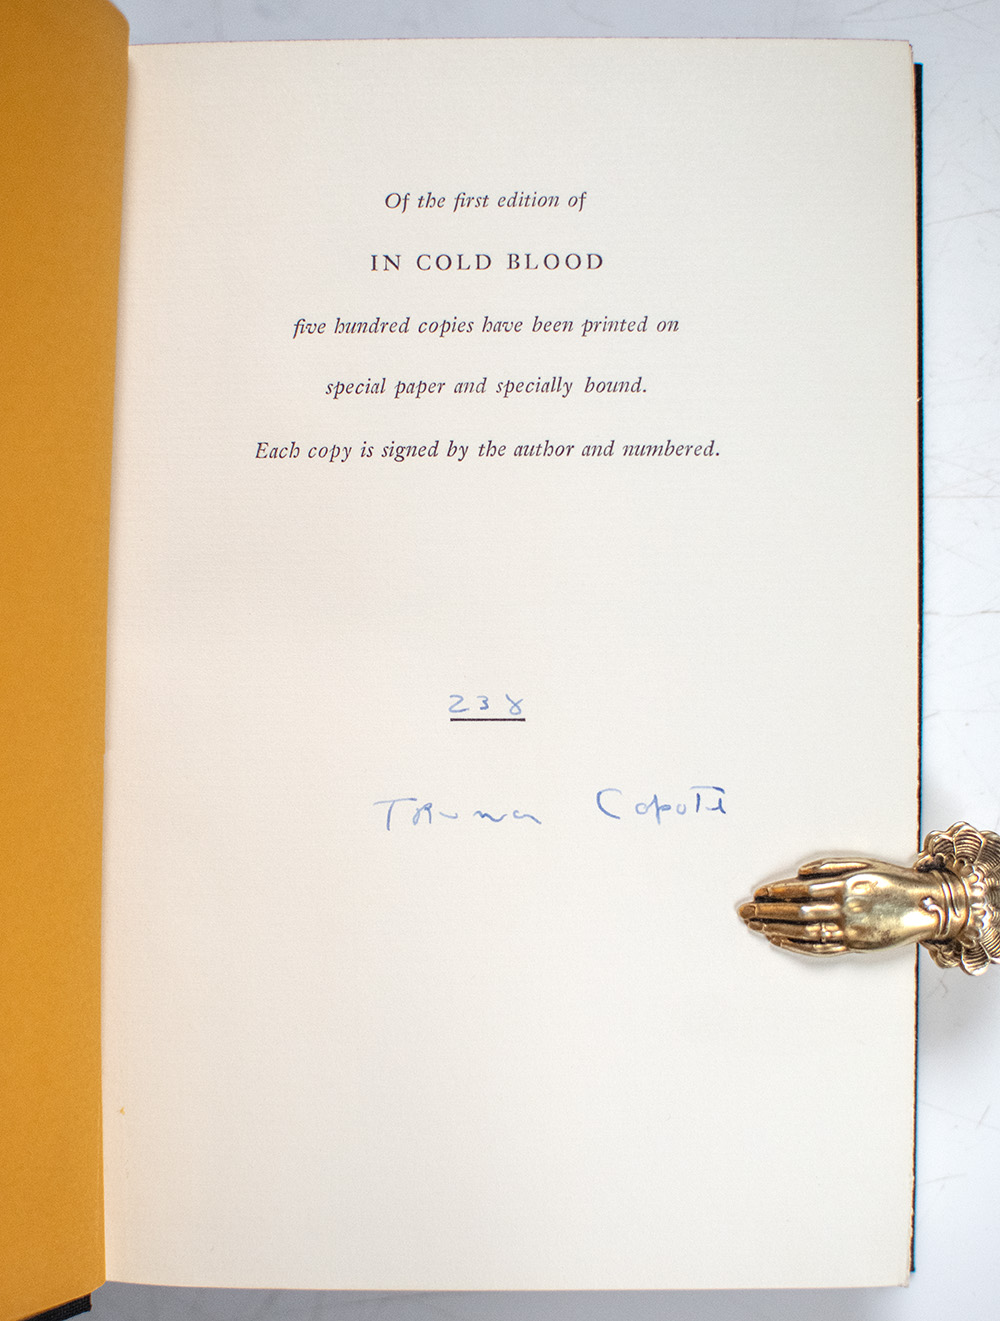 Of the first edition of
IN COLD BLOOD
five hundred copies have been printed on
special paper and specially bound.
Each copy is signed by the author and numbered.
238
Truman Capote